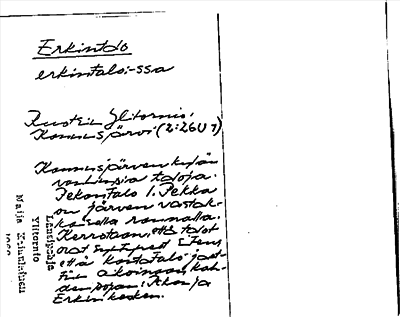 Erkintalo
erkintaloi-ssa
Ruotsin Ylitornio,
Kainuujärvi
järven kylän
vanhimpia taloja.
Pekantalo l. Pekka
on järven vastak-
kaisella rannalla.
Kerrotaan, että talot
ovat syntyneet siten,
että kantatalo jaet-
tiin aikoinaan kah-
den pojan: Pekan ja
Erkin kesken.
Länsipohja
Ylitornio
Maija